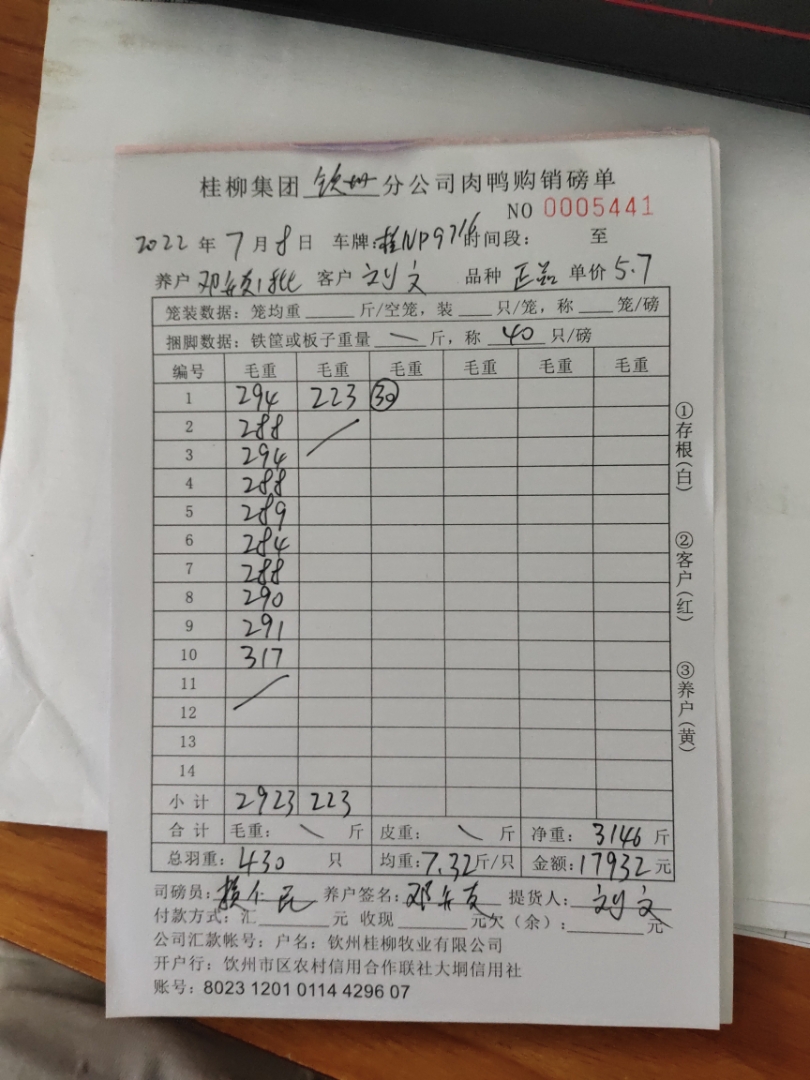 桂柳集团 钦州 分公司肉鸭购销磅单
NO 0005441
2022 年 7 月 8 日 车牌:桂NP9716 时间段: 至
养户 邓 批 客户 刘文 品种 正品 单价 5.7
笼装数据:笼均重 斤/空笼,装 只/笼,称 笼/磅
捆脚数据:铁筐或板子重量 \ 斤,称 40 只/磅
编号 毛重 毛重 毛重 毛重 毛重 毛重
1 294 223 ㉚
2 288
3 294
4 288
5 289
6 284
7 288
8 290
9 291
10 317
11
12
13
14
小计 2923 223
合计 毛重: \ 斤 皮重: \ 斤 净重: 3146 斤
总羽重: 430 只 均重: 7.32 斤/只 金额: 17932 元
司磅员: 养户签名: 邓 友 提货人: 刘文
付款方式:汇 元 收现 元欠(余): 元
公司汇款帐号:户名:钦州桂柳牧业有限公司
开户行:钦州市区农村信用合作联社大垌信用社
账号:8023 1201 0114 4296 07
①存根(白)
②客户(红)
③养户(黄)